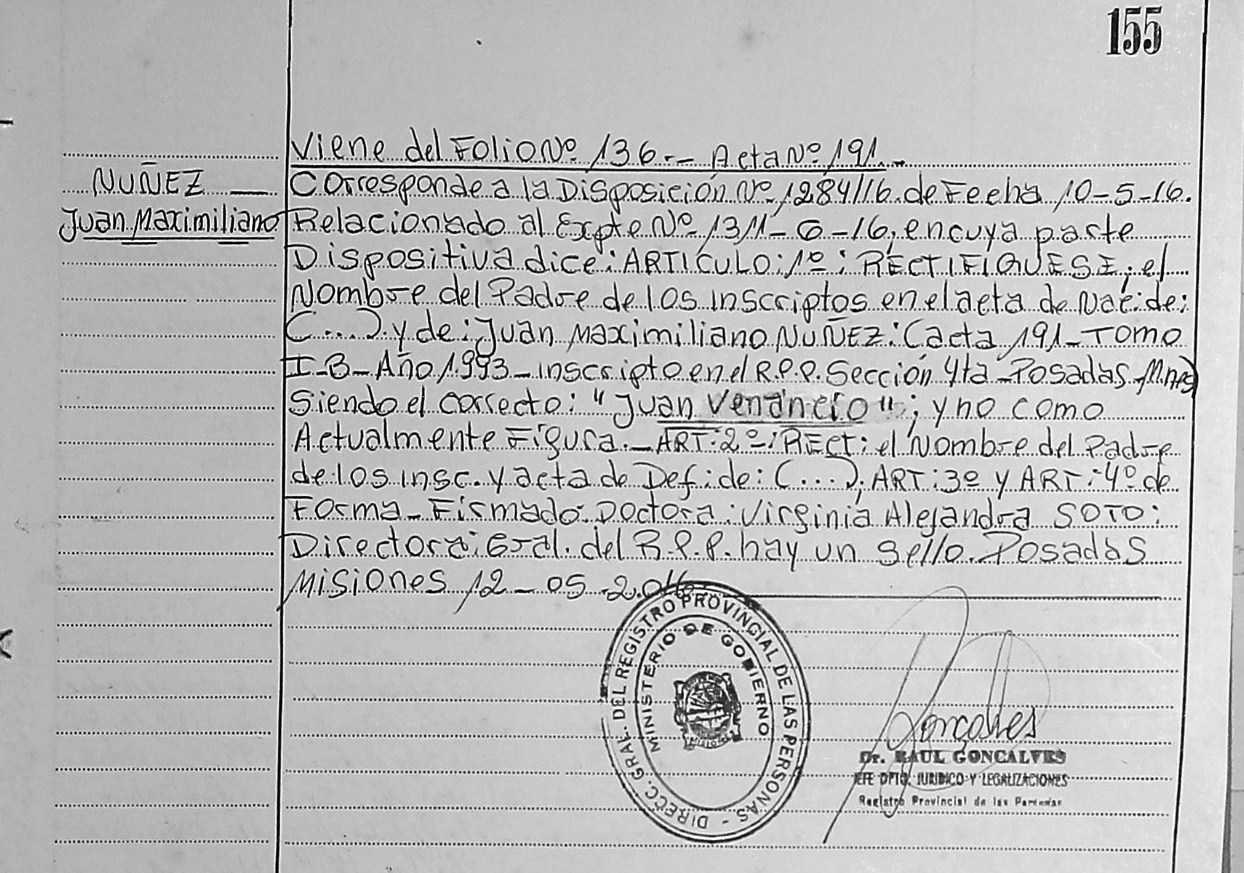 155
Viene del Folio Nº 136.- Acta Nº 191.-
NUÑEZ
Juan Maximiliano
Corresponde a la Disposición Nº 1284/16. de Fecha 10-5-16.
Relacionado al Expte Nº 1311-G-16, en cuya parte
Dispositiva dice: ARTICULO: 1º: RECTIFIQUESE; el
Nombre del Padre de los inscriptos en el acta de Nac: de:
(...). y de: Juan Maximiliano NUÑEZ: (acta 191- Tomo
I-B- Año 1993- inscripto en el R.P.P. Sección 4ta- Posadas- Mnes)
Siendo el correcto: "Juan Venancio"; y no como
Actualmente Figura.- ART: 2º: RECT: el Nombre del Padre
de los insc. y acta de Def: de: (...). ART: 3º y ART: 4º de
Forma- Firmado Doctora: Virginia Alejandra SOTO:
Directora: Gral. del R.P.P. hay un sello. Posadas
Misiones 12-05-2.016
DIRECC. GRAL. DEL REGISTRO PROVINCIAL DE LAS PERSONAS -
MINISTERIO DE GOBIERNO
MISIONES
Goncalves
Dr. RAUL GONCALVES
JEFE DPTO. JURIDICO Y LEGALIZACIONES
Registro Provincial de las Personas